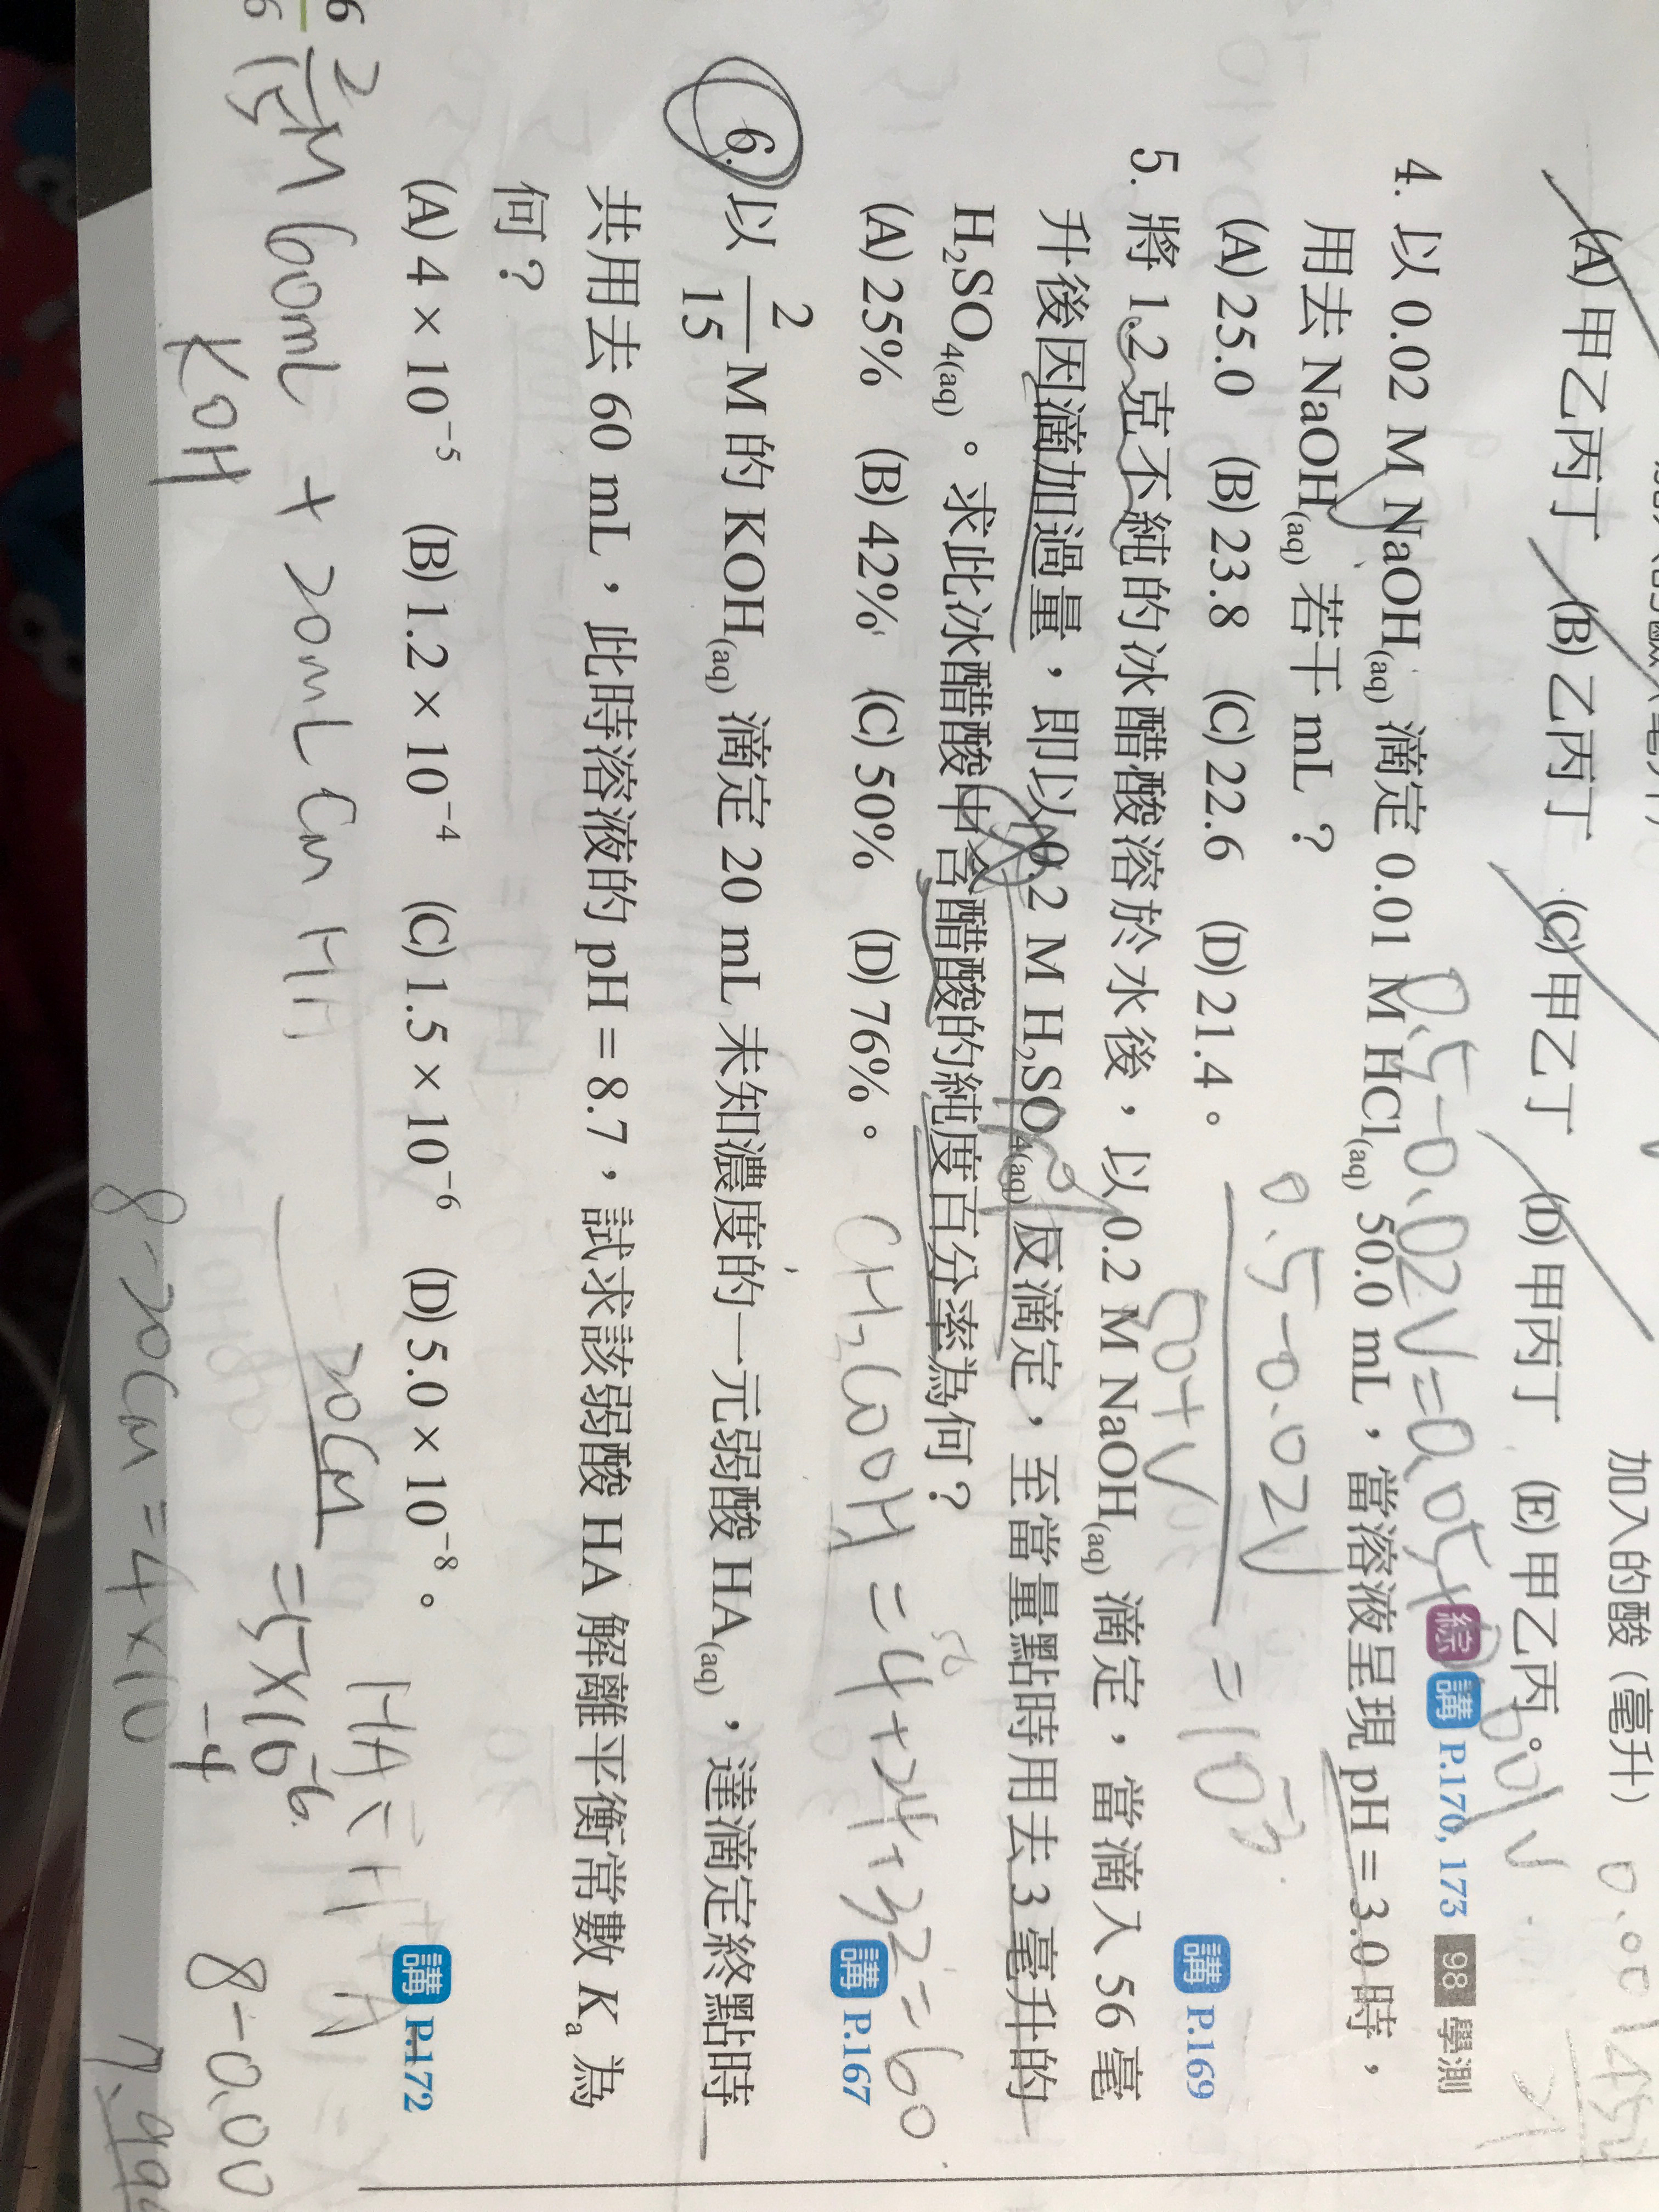 加入的酸(毫升)
(A)甲乙丙丁 (B)乙丙丁 (C)甲乙丁 (D)甲丙丁 (E)甲乙丙。
綜 講 P.170, 173 98 學測
4. 以 0.02 M NaOH(aq) 滴定 0.01 M HCl(aq) 50.0 mL,當溶液呈現 pH = 3.0 時,
用去 NaOH(aq) 若干 mL?
(A) 25.0 (B) 23.8 (C) 22.6 (D) 21.4。
0.5-0.02V
50+V
= 10⁻³
講 P.169
5. 將 1.2 克不純的冰醋酸溶於水後,以 0.2 M NaOH(aq) 滴定,當滴入 56 毫
升後因滴加過量,即以 0.2 M H₂SO₄(aq) 反滴定,至當量點時用去 3 毫升的
H₂SO₄(aq)。求此冰醋酸中含醋酸的純度百分率為何?
(A) 25% (B) 42% (C) 50% (D) 76%。
CH₃COOH = 4+24+32=60
講 P.167
6. 以 2/15 M 的 KOH(aq) 滴定 20 mL 未知濃度的一元弱酸 HA(aq),達滴定終點時
共用去 60 mL,此時溶液的 pH = 8.7,試求該弱酸 HA 解離平衡常數 Ka 為
何?
(A) 4 × 10⁻⁵ (B) 1.2 × 10⁻⁴ (C) 1.5 × 10⁻⁶ (D) 5.0 × 10⁻⁸。
講 P.172
2/15 M 60mL + 20mL CM HA
KOH
20CM
= 5×10⁻⁶
8-20CM = 4×10⁻⁴
8-0.00